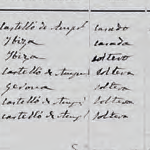 Castelló de Ampª casado
Ibiza casada
Ibiza soltero
Castelló de Ampª soltera
Gerona soltera
Castelló de Ampª soltera
Castelló de Ampª soltera